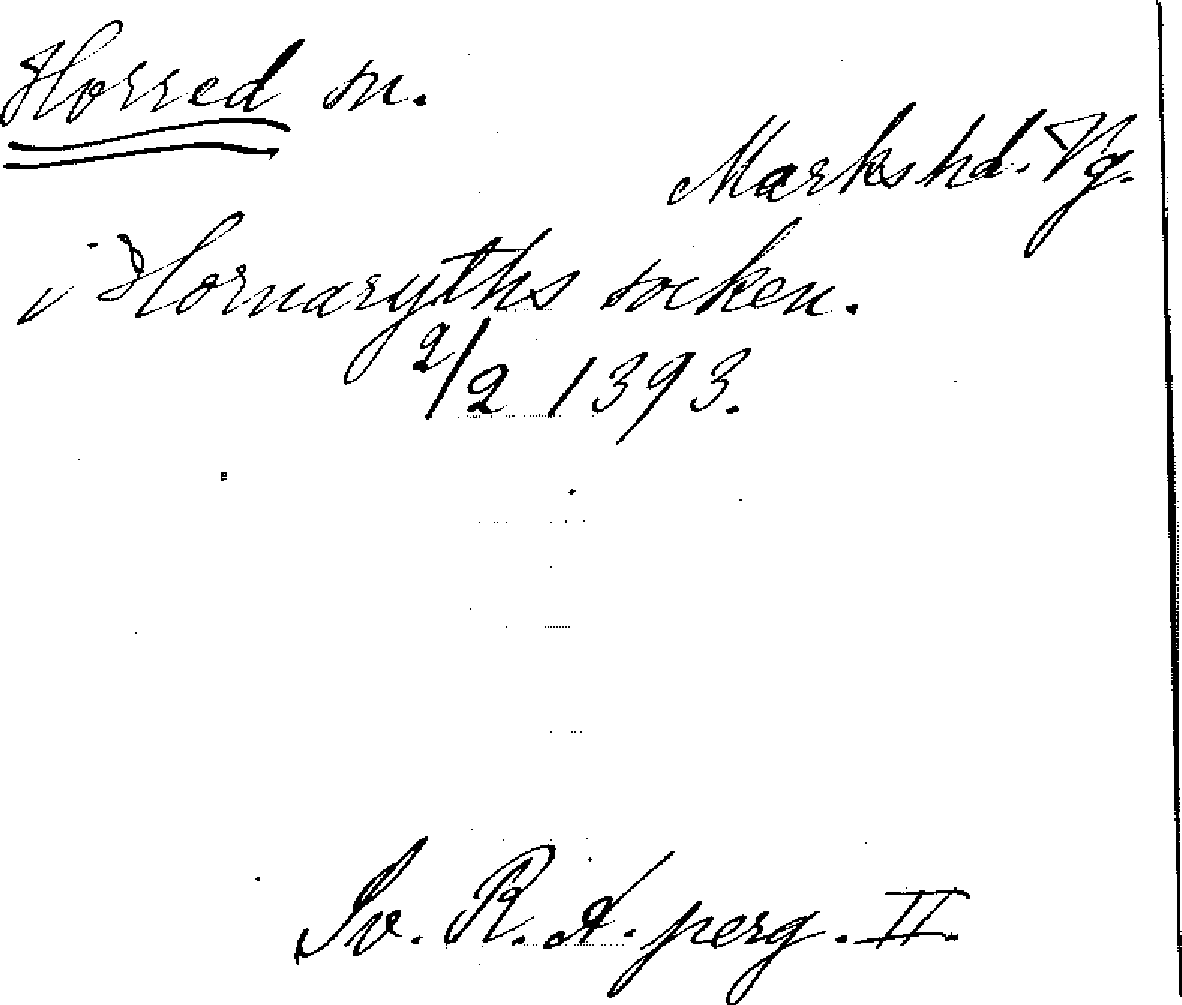 Horred sn.
Marks hd. Vg.
i Hornaryths socken.
2/2 1393.
Sv. R. A. perg. II.